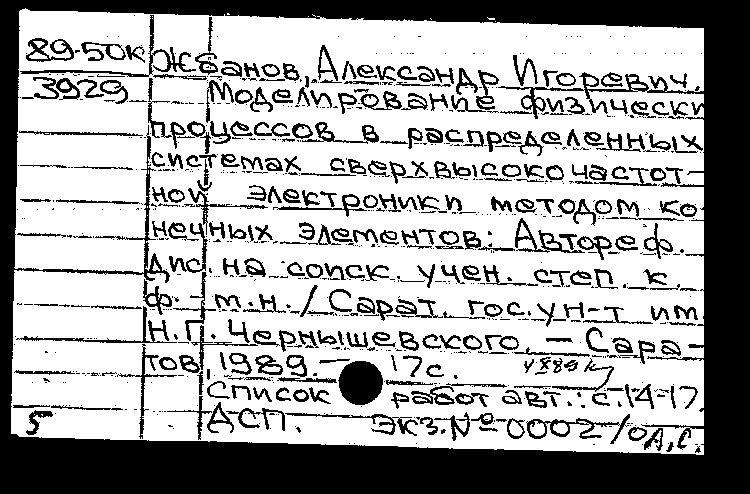 89-50к Жбанов, Александр Игоревич.
3929 Моделирование физически
процессов в распределенных
системах сверхвысокочастот-
ной электроники методом ко-
нечных элементов: Автореф.
дис. на соиск. учен. степ. к.
ф.-м.н. / Сарат. гос. ун-т им.
Н.Г. Чернышевского. — Сара-
тов, 1989. — 17с.
Список работ авт.: с.14-17.
5 ДСП. Экз. № 0002